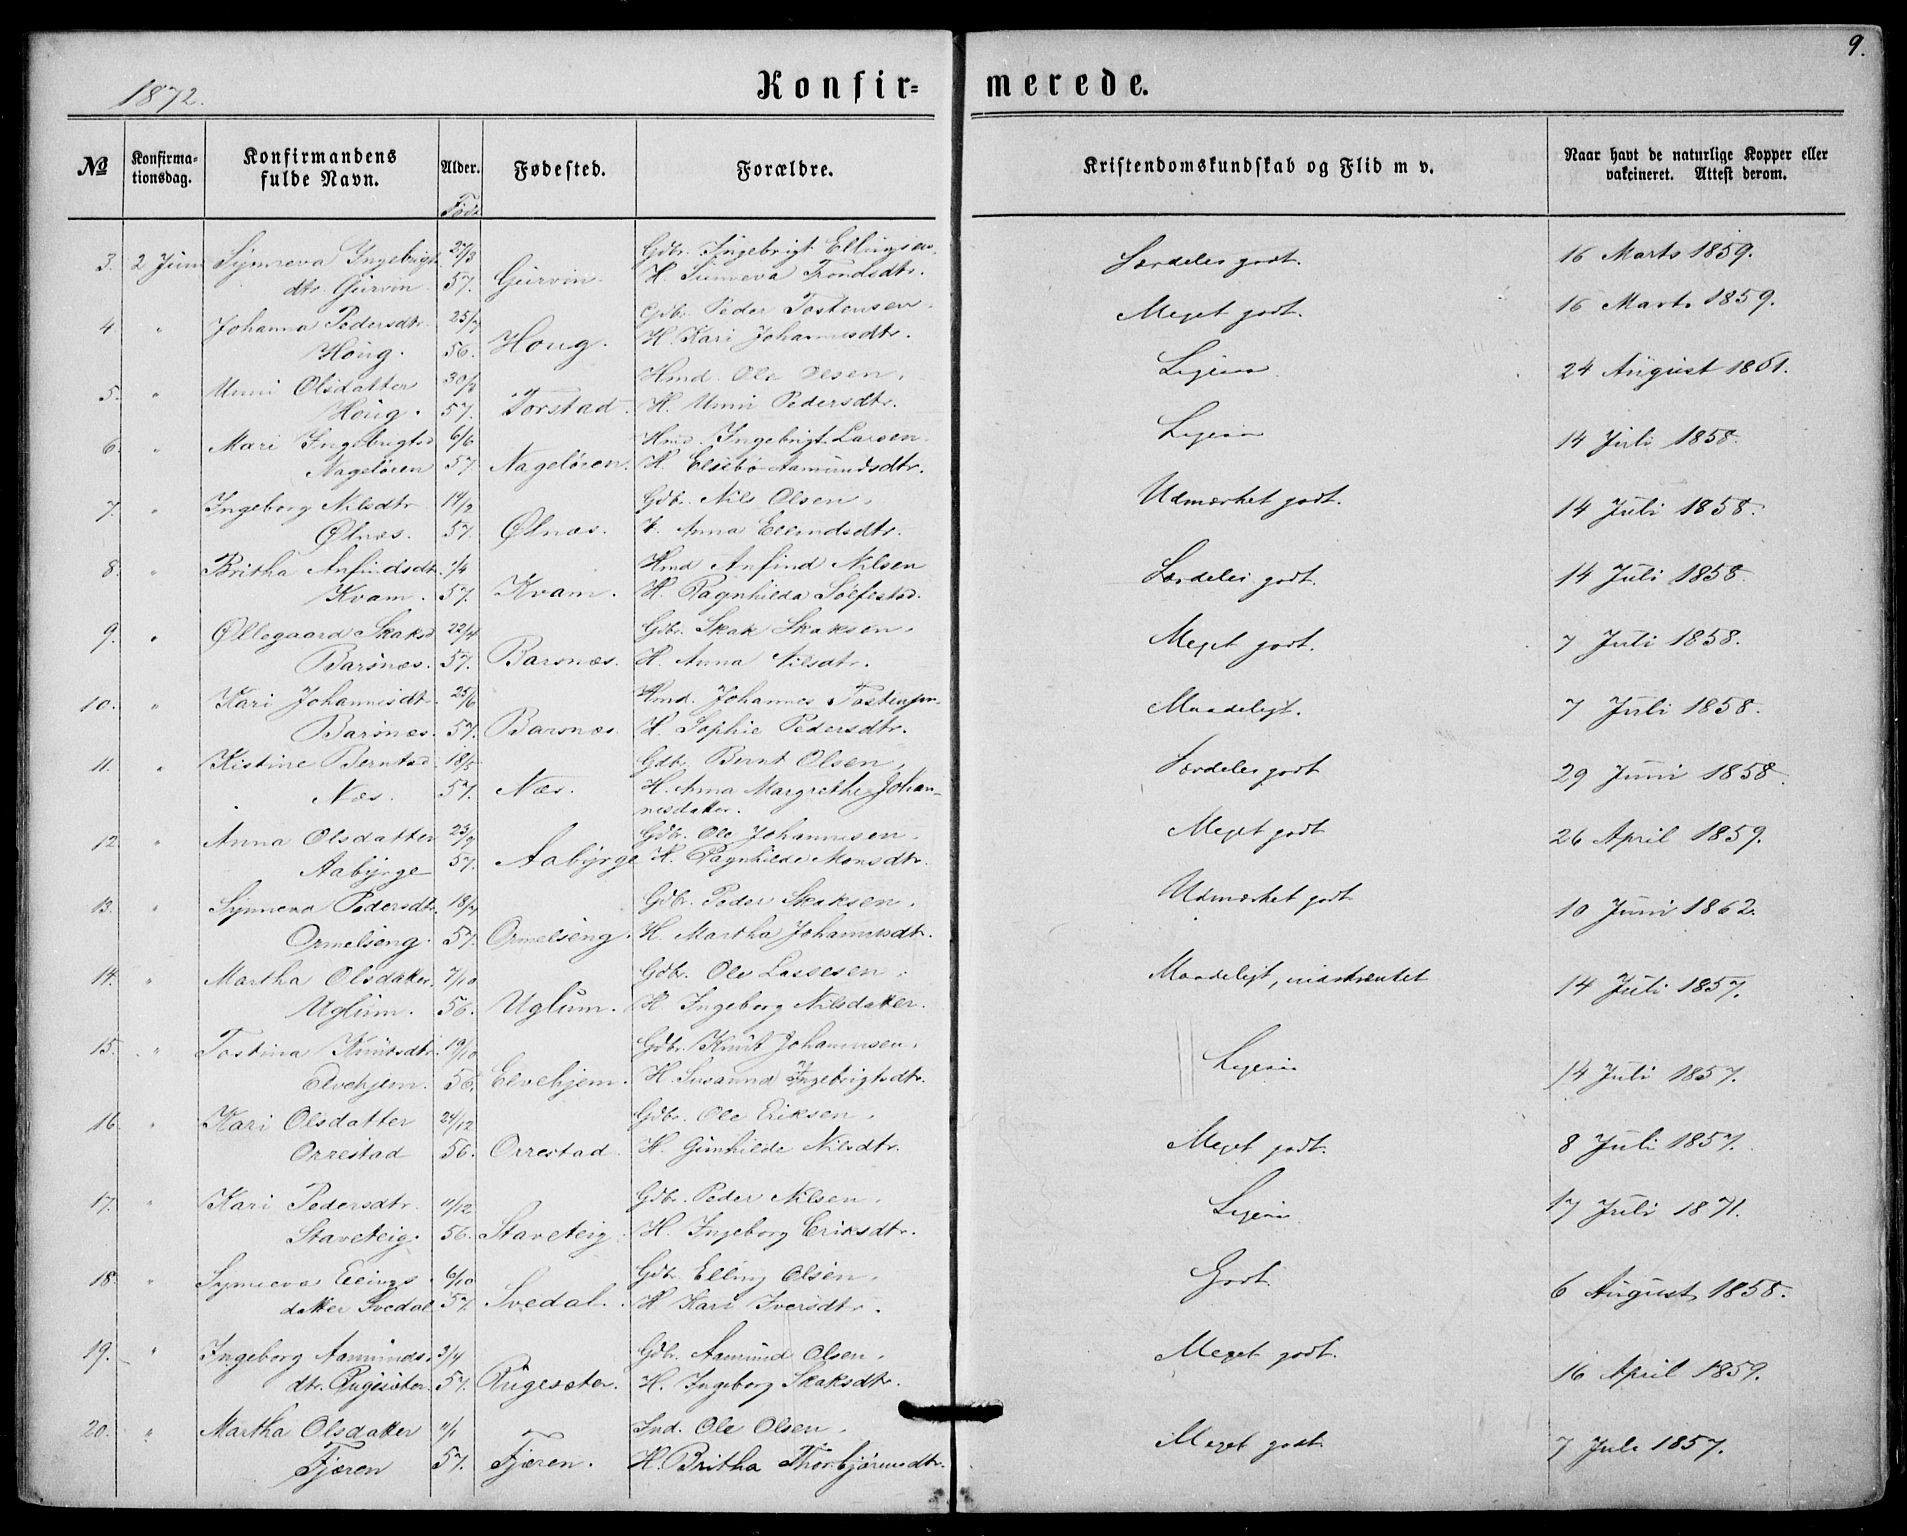 9.
1872.
Konfir=merede.
No Konfirmationsdag. Konfirmandens fulde Navn. Alder. Fødested. Forældre. Kristendomskundskab og Flid m v. Naar havt de naturlige Kopper eller vakcineret. Attest derom.
Født
3. 2 Juni Synneva Ingebrigt 27/3 Gdbr. Ingebrigt Ellingsen. Særdeles godt. 16 Marts 1859.
dtr. Gürvin. 57. Gürvin. H. Sünneva Trondsdtr.
4 " Johanna Pedersdtr. 25/7 Gdbr. Peder Tostensen. Meget godt. 16 Marts 1859.
Houg. 56. Houg. H. Kari Johannesdtr.
5. " Unni Olsdatter 30/3 Hmd. Ole Olsen. Ligesaa. 24 August 1861.
Houg. 57. Torstad. H. Unni Pedersdtr.
6. " Mari Ingebrigtsd 6/6 Hmd. Ingebrigt Larsen. Ligesaa 14 Juli 1858.
Nagelören 57. Nagelören. H. Elsebö Aamundsdtr.
7. " Ingeborg Nilsdtr 14/2 Gdbr. Nils Olsen. Udmærket godt. 14 Juli 1858.
Ølnæs. 57. Ølnæs. H. Anna Ellendsdtr.
8. " Britha Anfindsdt. 1/4 Hmd Anfind Nilsen Særdeles godt. 14 Juli 1858.
Kvam. 57. Kvam. H. Ragnhilda Solfestsd.
9. " Øllegaard Skaksd 22/4 Gdbr. Skak Skaksen. Meget godt. 7 Juli 1858.
Barsnæs. 57. Barsnæs. H. Anna Nilsdtr.
10. " Kari Johannesdtr. 25/6 Hmd. Johannes Tostensen. Maadeligt. 7 Juli 1858.
Barsnæs. 57. Barsnæs. H. Sophie Pedersdtr.
11. " Kistine Berntsd. 18/5 Gdbr. Bernt Olsen. Særdeles godt 29 Juni 1858.
Næs. 57. Næs. H. Anna Margrethe Johan-
nesdatter.
12. " Anna Olsdatter 23/9 Gdbr. Ole Johannesen. Meget godt 26 April 1859.
Aabyrge 57. Aabyrge H. Ragnhilde Monsdtr.
13. " Synneva Pedersdtr. 18/7 Gdbr. Peder Skaksen. Udmærket godt 10 Juni 1862.
Ormelseng. 57. Ormelseng. H. Martha Johannesdtr.
14. " Martha Olsdatter. 7/10 Gdbr. Ole Lassesen. Maadeligt, indskrænket 14 Juli 1857.
Uglum. 56. Uglum. H. Ingeborg Nilsdatter.
15. " Tostina Knutsdtr. 19/10 Gdbr. Knut Johannesen. Ligesaa 14 Juli 1857.
Elvehjem. 56. Elvehjem. H. Susanna Ingebrigtsdtr.
16. " Kari Olsdatter 24/12 Gdbr. Ole Eriksen. Meget godt. 8 Juli 1857.
Orrestad 56. Orrestad. H. Gunhilde Nilsdtr.
17. " Kari Pedersdtr. 11/12 Gdbr. Peder Nilsen. Ligesaa 17 Juli 1871.
Staveteig. 56. Staveteig. H. Ingeborg Eriksdtr.
18. " Synneva Ellings 6/10 Gdbr. Elling Olsen. Godt. 6 August 1858.
datter Svedal 57. Svedal. H. Kari Iversdtr.
19. " Ingeborg Aamunds. 3/4 Gdbr. Aamund Olsen. Meget godt. 16 April 1859.
dtr. Rugesæter. 57. Rugesæter. H. Ingeborg Skaksdtr.
20. " Martha Olsdatter 11/1 Ind. Ole Olsen. Meget godt. 7 Juli 1857.
Fjæren 57. Fjæren. H. Britha Thorbjörnsdtr.